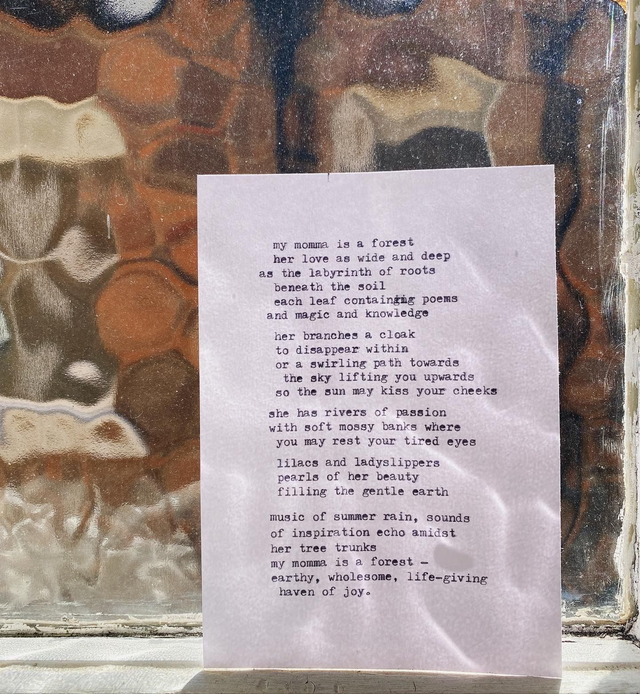 my momma is a forest
her love as wide and deep
as the labyrinth of roots
beneath the soil
each leaf containing poems
and magic and knowledge
her branches a cloak
to disappear within
or a swirling path towards
the sky lifting you upwards
so the sun may kiss your cheeks
she has rivers of passion
with soft mossy banks where
you may rest your tired eyes
lilacs and ladyslippers
pearls of her beauty
filling the gentle earth
music of summer rain, sounds
of inspiration echo amidst
her tree trunks
my momma is a forest —
earthy, wholesome, life-giving
haven of joy.